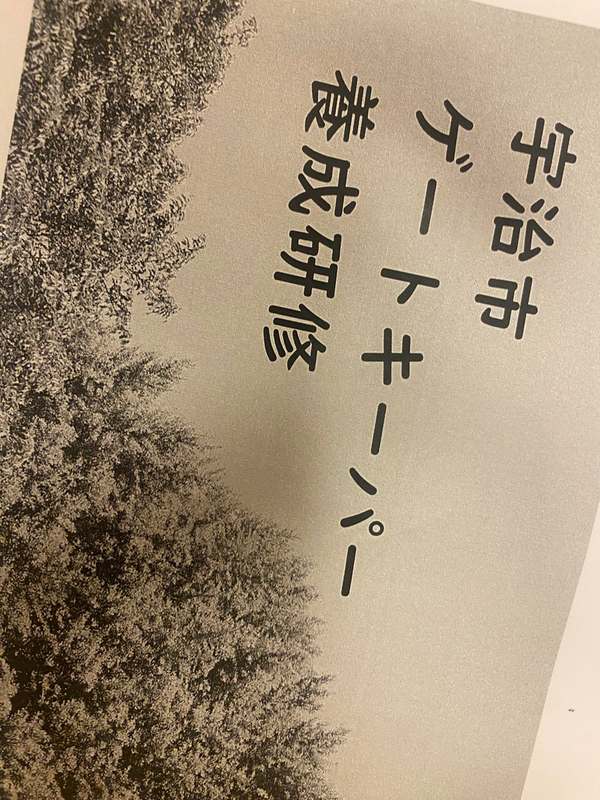 宇治市
ゲートキーパー
養成研修